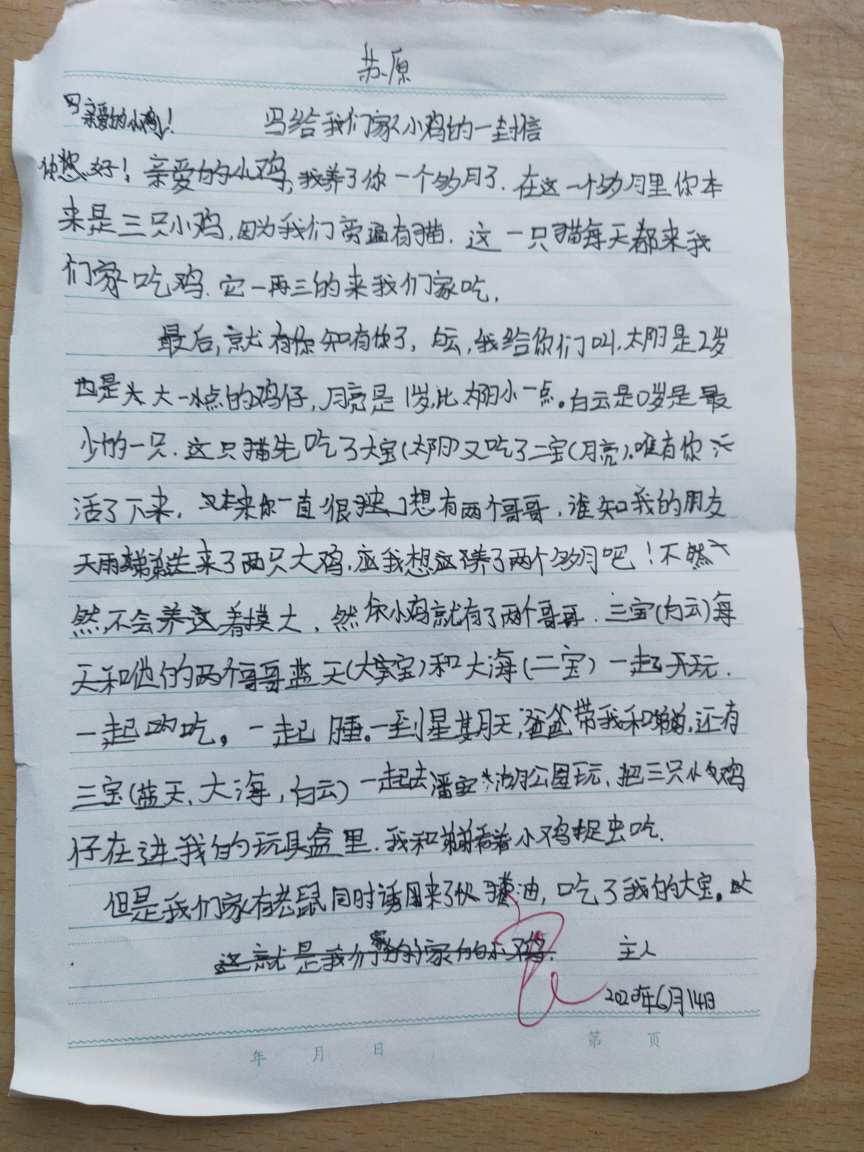 苏原
亲爱的小鸡! 写给我们家小鸡的一封信
您好!亲爱的小鸡,我养了你一个多月了.在这一个多月里你本
来是三只小鸡,因为我们旁边有猫.这一只猫每天都来我
们家吃鸡.它一再三的来我们家吃,
最后,就有你知有你了,白云,我给你们叫.太阳是2岁
也是大一点的鸡仔,月亮是1岁,比太阳小一点。白云是0岁是最
少的一只.这只猫先吃了大宝(太阳)又吃了二宝(月亮).唯有你
活了下来,本来你一直很想有两个哥哥,谁知我的朋友
天雨弟弟送来了两只大鸡.应我想应养了两个多月吧!不然
然,不会养这着摸大,然你小鸡就有了两个哥哥.三宝(白云)每
天和他的两个哥哥蓝天(大宝)和大海(二宝)一起开玩.
一起吃。一起睡。一到星其月天,爸爸带我和弟弟,还有
三宝(蓝天、大海,白云)一起去潘安湖公园玩,把三只小鸡
仔在进我的玩具盒里.我和弟弟看着小鸡捉虫吃.
但是我们家有老鼠同时诱用来了伙猫油,吃了我的大宝。
这就是我们家的小鸡. 主人
2020年6月14日
年 月 日 第 页